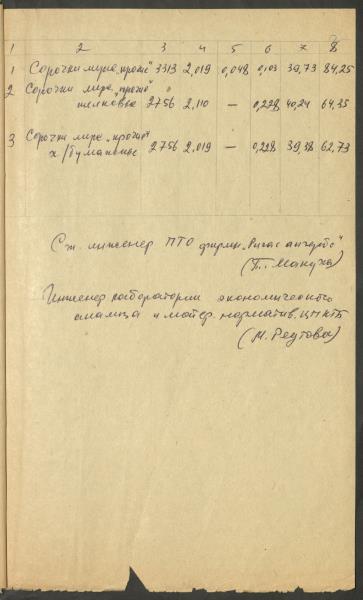 1 2 3 4 5 6 7 8
1 Сорочки муж. „проте" 3313 2,019 0,048 0,103 39,73 84,25
2 Сорочки муж. „проте"
шелковые 2756 2,110 — 0,228 40,24 64,35
3 Сорочки муж.
х/бумажные 2756 2,019 — 0,228 39,38 62,73
Ст. инженер ПТО фирмы „Ригас апгербс"
(Т. Мануха)
Инженер лаборатории экономического
анализа и матер. норматив. ЦПКТБ
(М. Реутова)